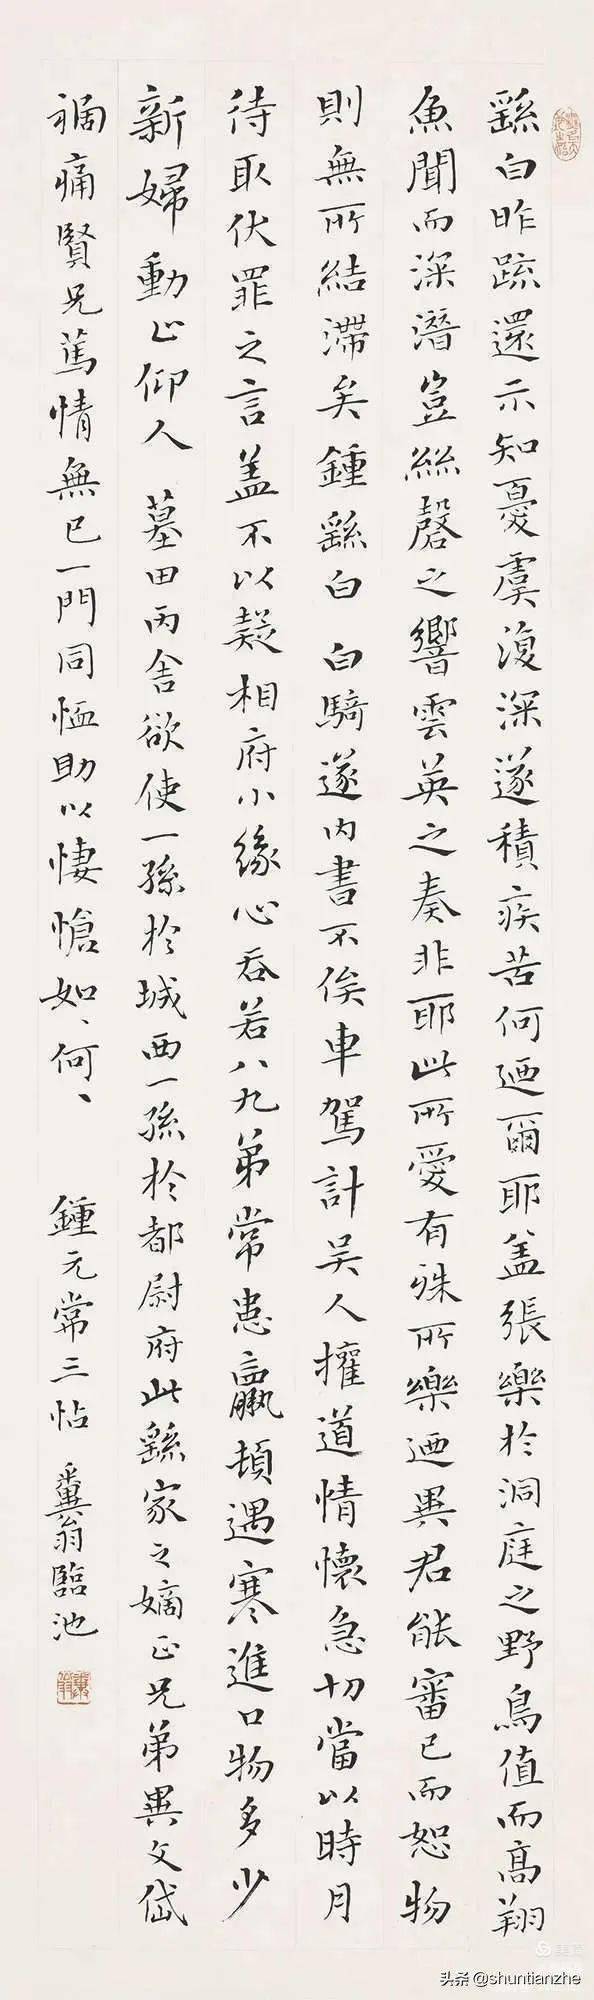 繇白昨疏還示知憂虞復深遂積疾苦何迺爾耶盖張樂於洞庭之野鳥值而高翔
魚聞而深潛豈絲磬之響雲英之奏非耶此所愛有殊所樂迺異君能審己而恕物
則無所結滯矣鍾繇白 白騎遂内書不俟車駕計吴人擁道情懷急切當以時月
待取伏罪之言盖不以疑相府小緣心吞若八九弟常患羸頓遇寒進口物多少
新婦動止仰人 墓田丙舍欲使一孫於城西一孫於都尉府此繇家之嫡正兄弟異文岱
禍痛賢兄篤情無已一門同恤助以悽愴如〻何〻 鍾元常三帖 糞翁臨池
头条 @shuntianzhe